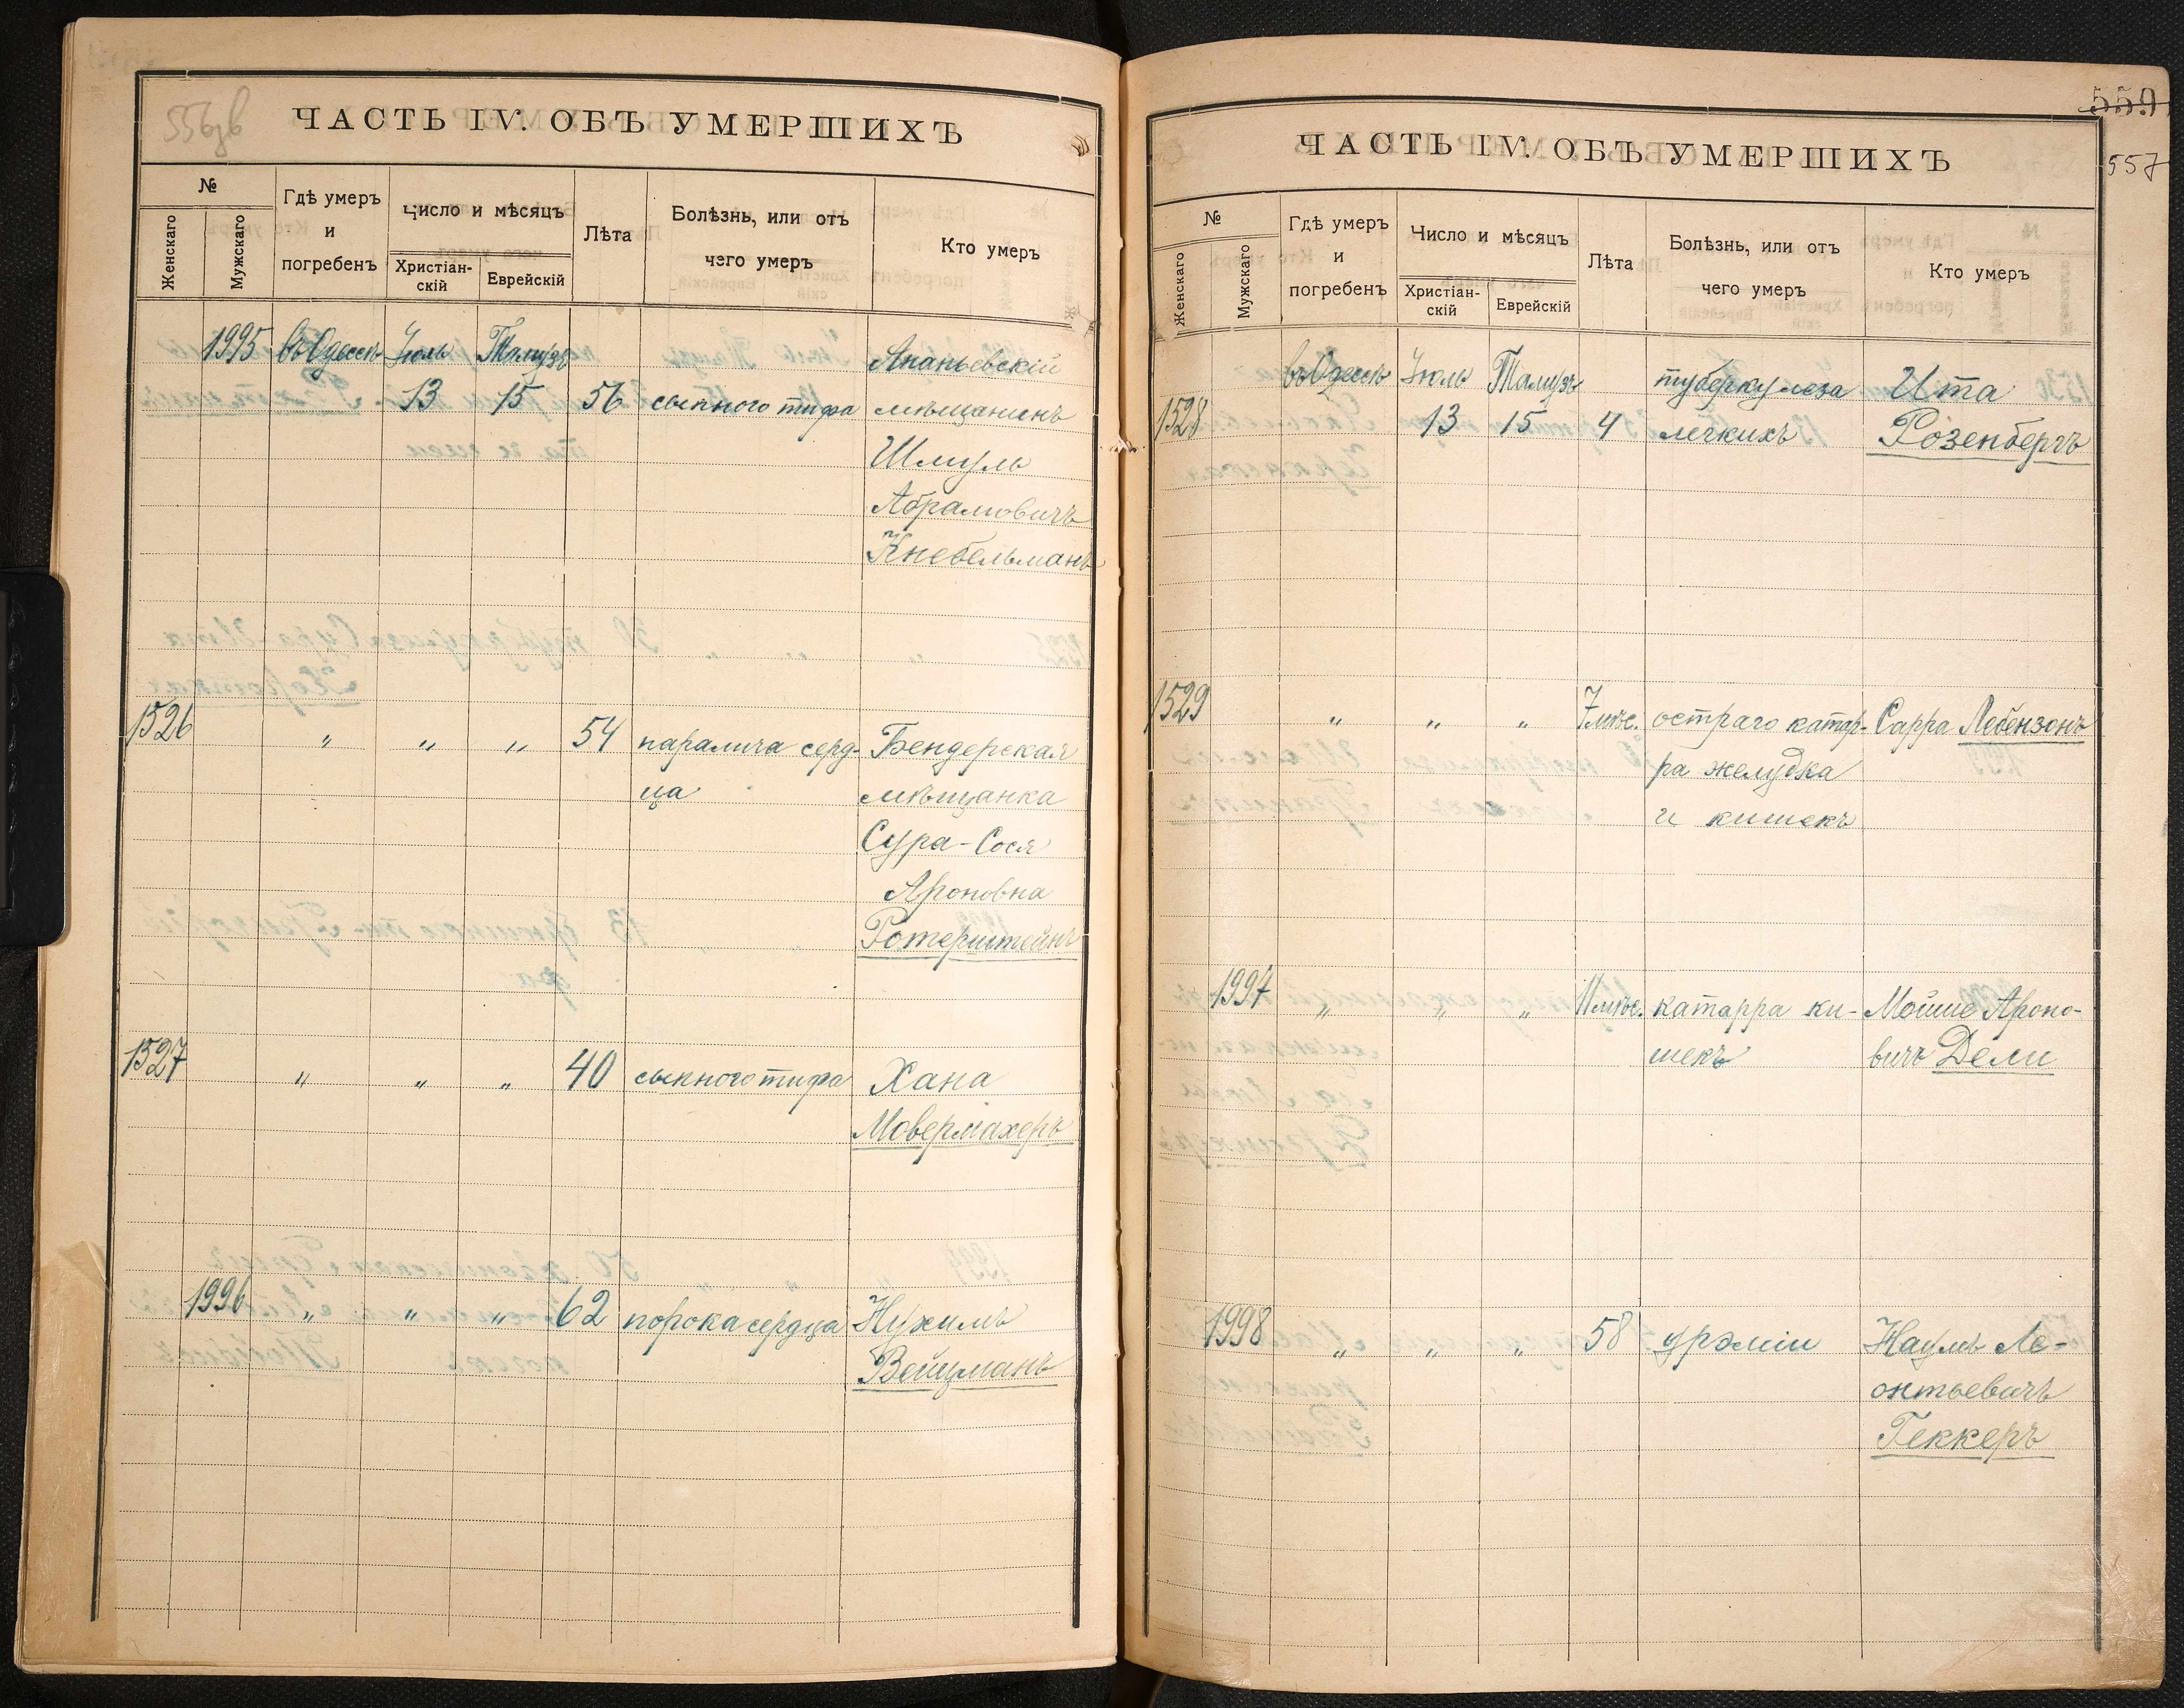 556об
ЧАСТЬ IV. ОБЪ УМЕРШИХЪ
№
Женскаго
Мужскаго
Гдѣ умеръ
и
погребенъ
Число и мѣсяцъ
Христіан-
скій
Еврейскій
Лѣта
Болѣзнь, или отъ
чего умеръ
Кто умеръ
1995 въ Одессѣ Іюль Тамузъ Ананьевскій
13 15 56 сыпного тифа мѣщанинъ
Шмуль
Абрамовичъ
Кнебельманъ
1526 " " " 54 паралича серд- Бендерская
ца мѣщанка
Сура-Сося
Ароновна
Ротерштейнъ
1527 " " " 40 сыпного тифа Хана
Мовермахеръ
1996 " " " 62 порока сердца Нухимъ
Вейцманъ
559
557
ЧАСТЬ IV. ОБЪ УМЕРШИХЪ
№
Женскаго
Мужскаго
Гдѣ умеръ
и
погребенъ
Число и мѣсяцъ
Христіан-
скій
Еврейскій
Лѣта
Болѣзнь, или отъ
чего умеръ
Кто умеръ
въ Одессѣ Іюль Тамузъ туберкулеза Ита
1528 13 15 4 легкихъ Розенбергъ
1529 " " " 7 мѣс. остраго катар- Сарра Лебензонъ
ра желудка
и кишекъ
1997 " " " 11 мѣс. катарра ки- Мойше Ароно-
шекъ вичъ Дели
1998 " " " 58 урэміи Наумъ Ле-
онтьевичъ
Геккеръ